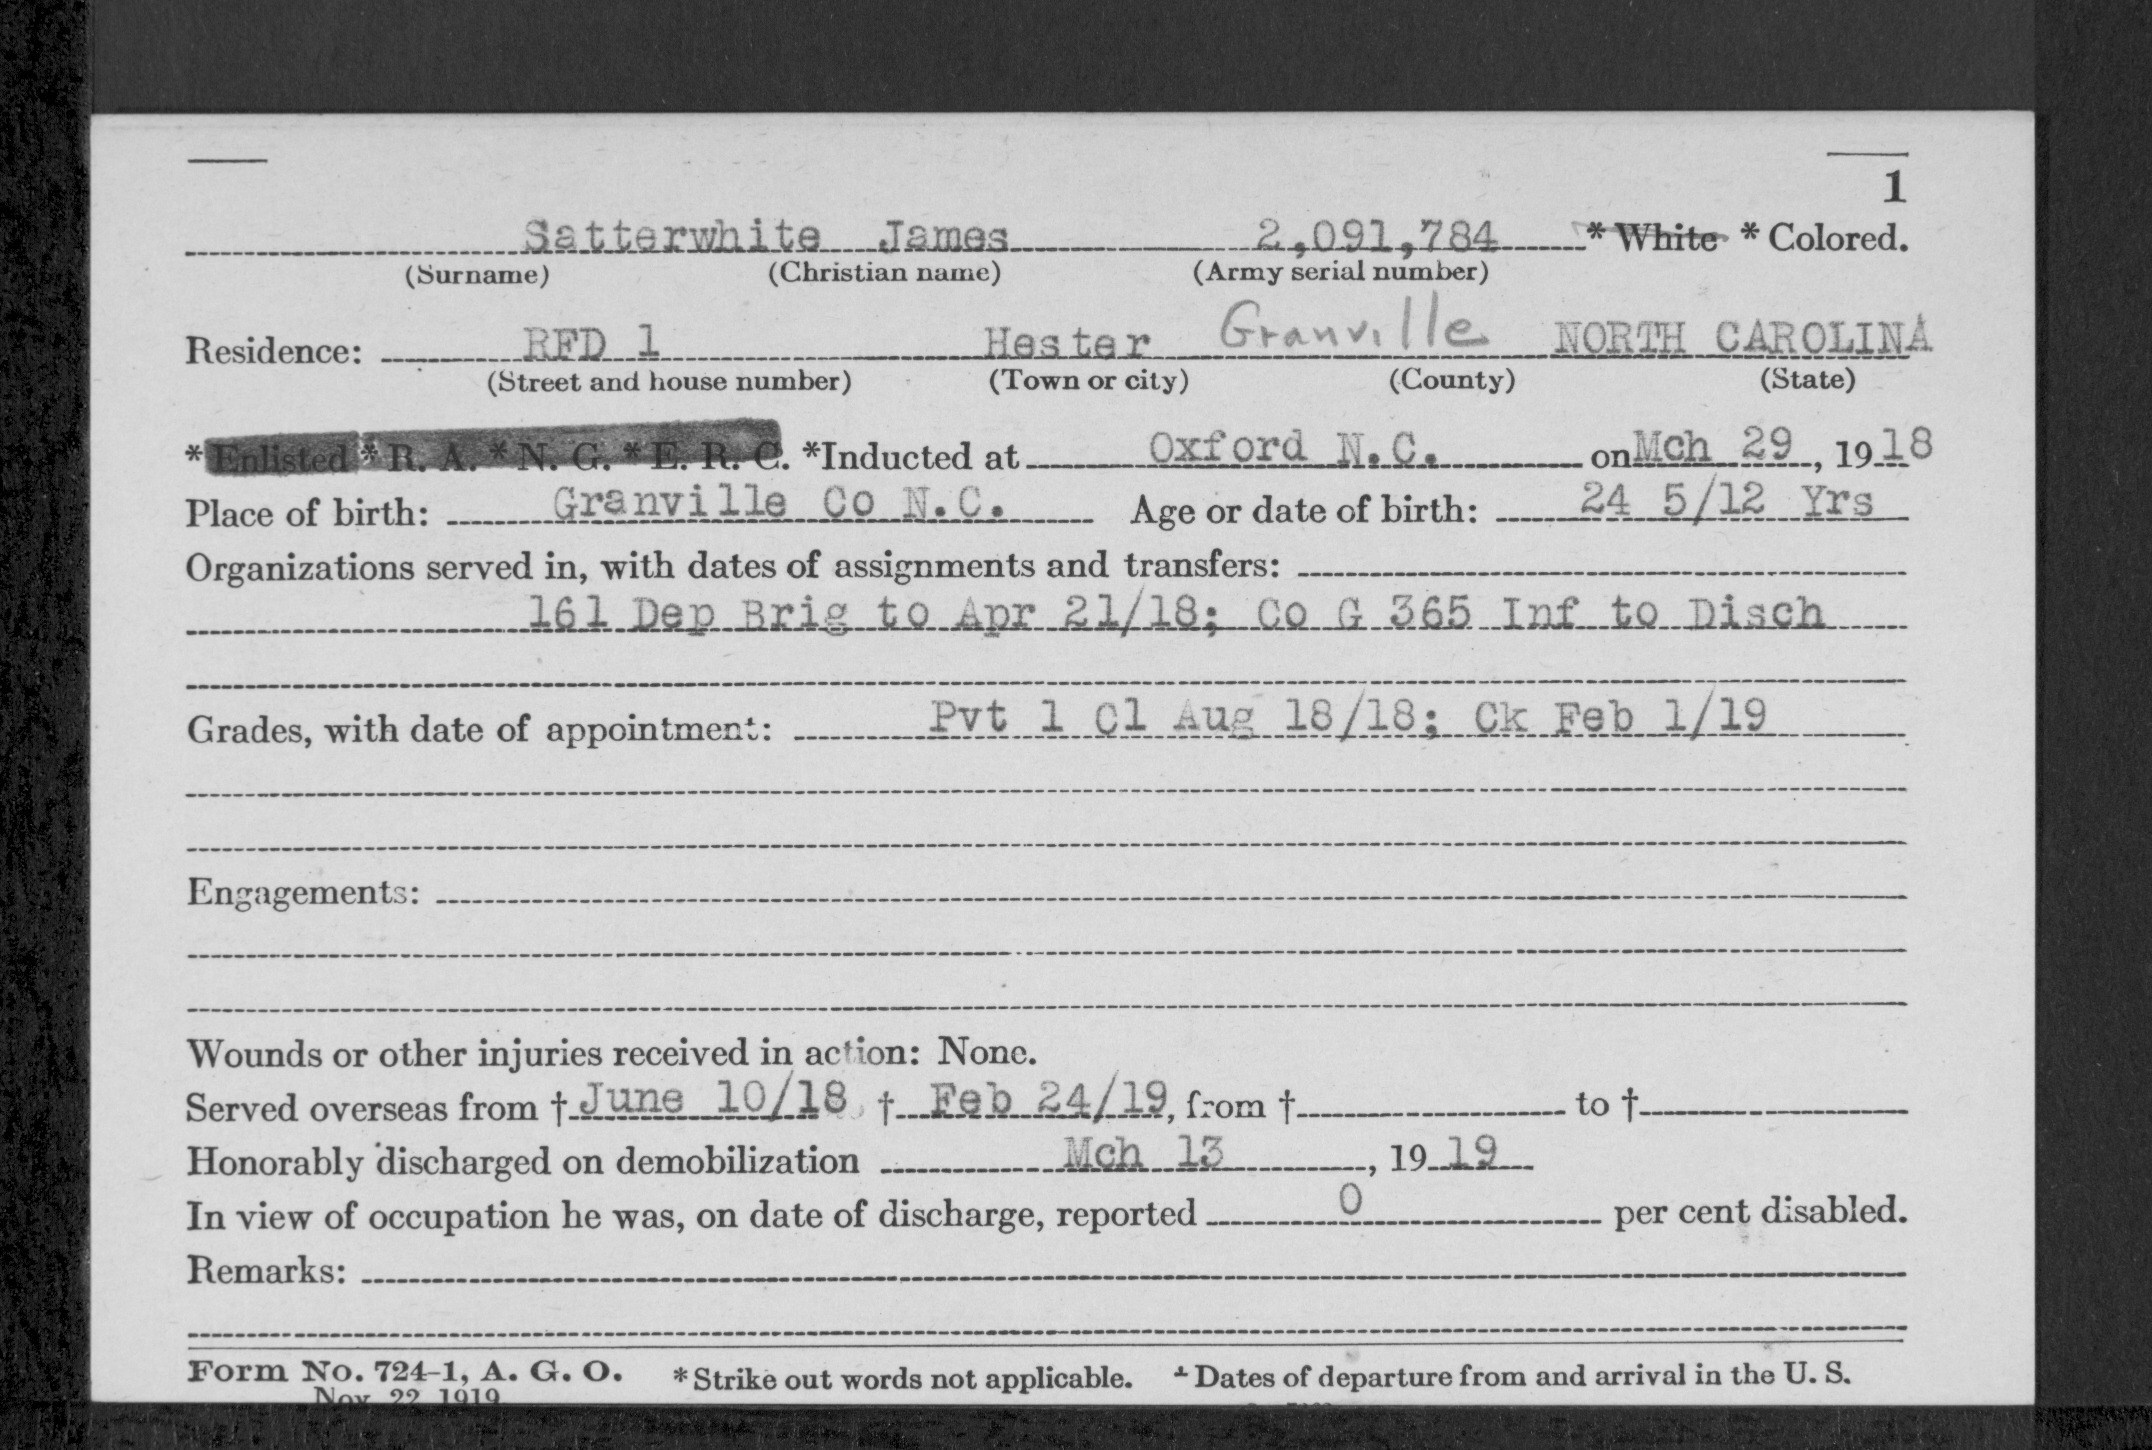 1
Satterwhite James 2,091,784 * White * Colored.
(Surname) (Christian name) (Army serial number)
Residence: RFD 1 Hester Granville NORTH CAROLINA
(Street and house number) (Town or city) (County) (State)
* Enlisted * R. A. * N. G. * E. R. C. *Inducted at Oxford N.C. on Mch 29, 1918
Place of birth: Granville Co N.C. Age or date of birth: 24 5/12 Yrs
Organizations served in, with dates of assignments and transfers:
161 Dep Brig to Apr 21/18; Co G 365 Inf to Disch
Grades, with date of appointment: Pvt 1 Cl Aug 18/18; Ck Feb 1/19
Engagements:
Wounds or other injuries received in action: None.
Served overseas from † June 10/18 † Feb 24/19, from † to †
Honorably discharged on demobilization Mch 13, 1919
In view of occupation he was, on date of discharge, reported 0 per cent disabled.
Remarks:
Form No. 724-1, A. G. O. * Strike out words not applicable. † Dates of departure from and arrival in the U. S.
Nov. 22, 1919